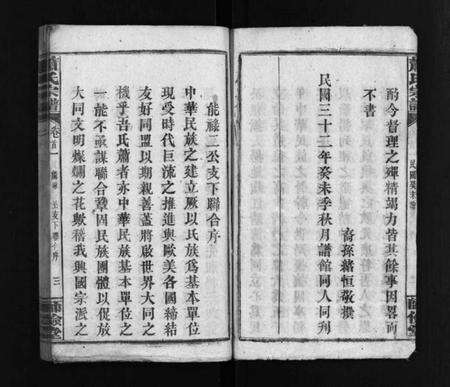 蕭氏宗譜
酌今督理之殫精竭力皆其餘事因畧而
不書
裔孫緒恒敬撰
民國三十二年癸未季秋月譜館同人同刋
能祿三公支下聯合序
中華民族之建立厥以氏族為基本單位
現受時代巨流之推進與歐美各國締結
友好同盟以期親善蓋將啟世界大同之
機乎吾氏蕭者亦中華民族基本單位之
一能不亟謀聯合鞏因民族團體以促放
大同文明燦爛之花歟稽我興國宗派之
蕭氏宗譜
卷首一
支下聯合序
三